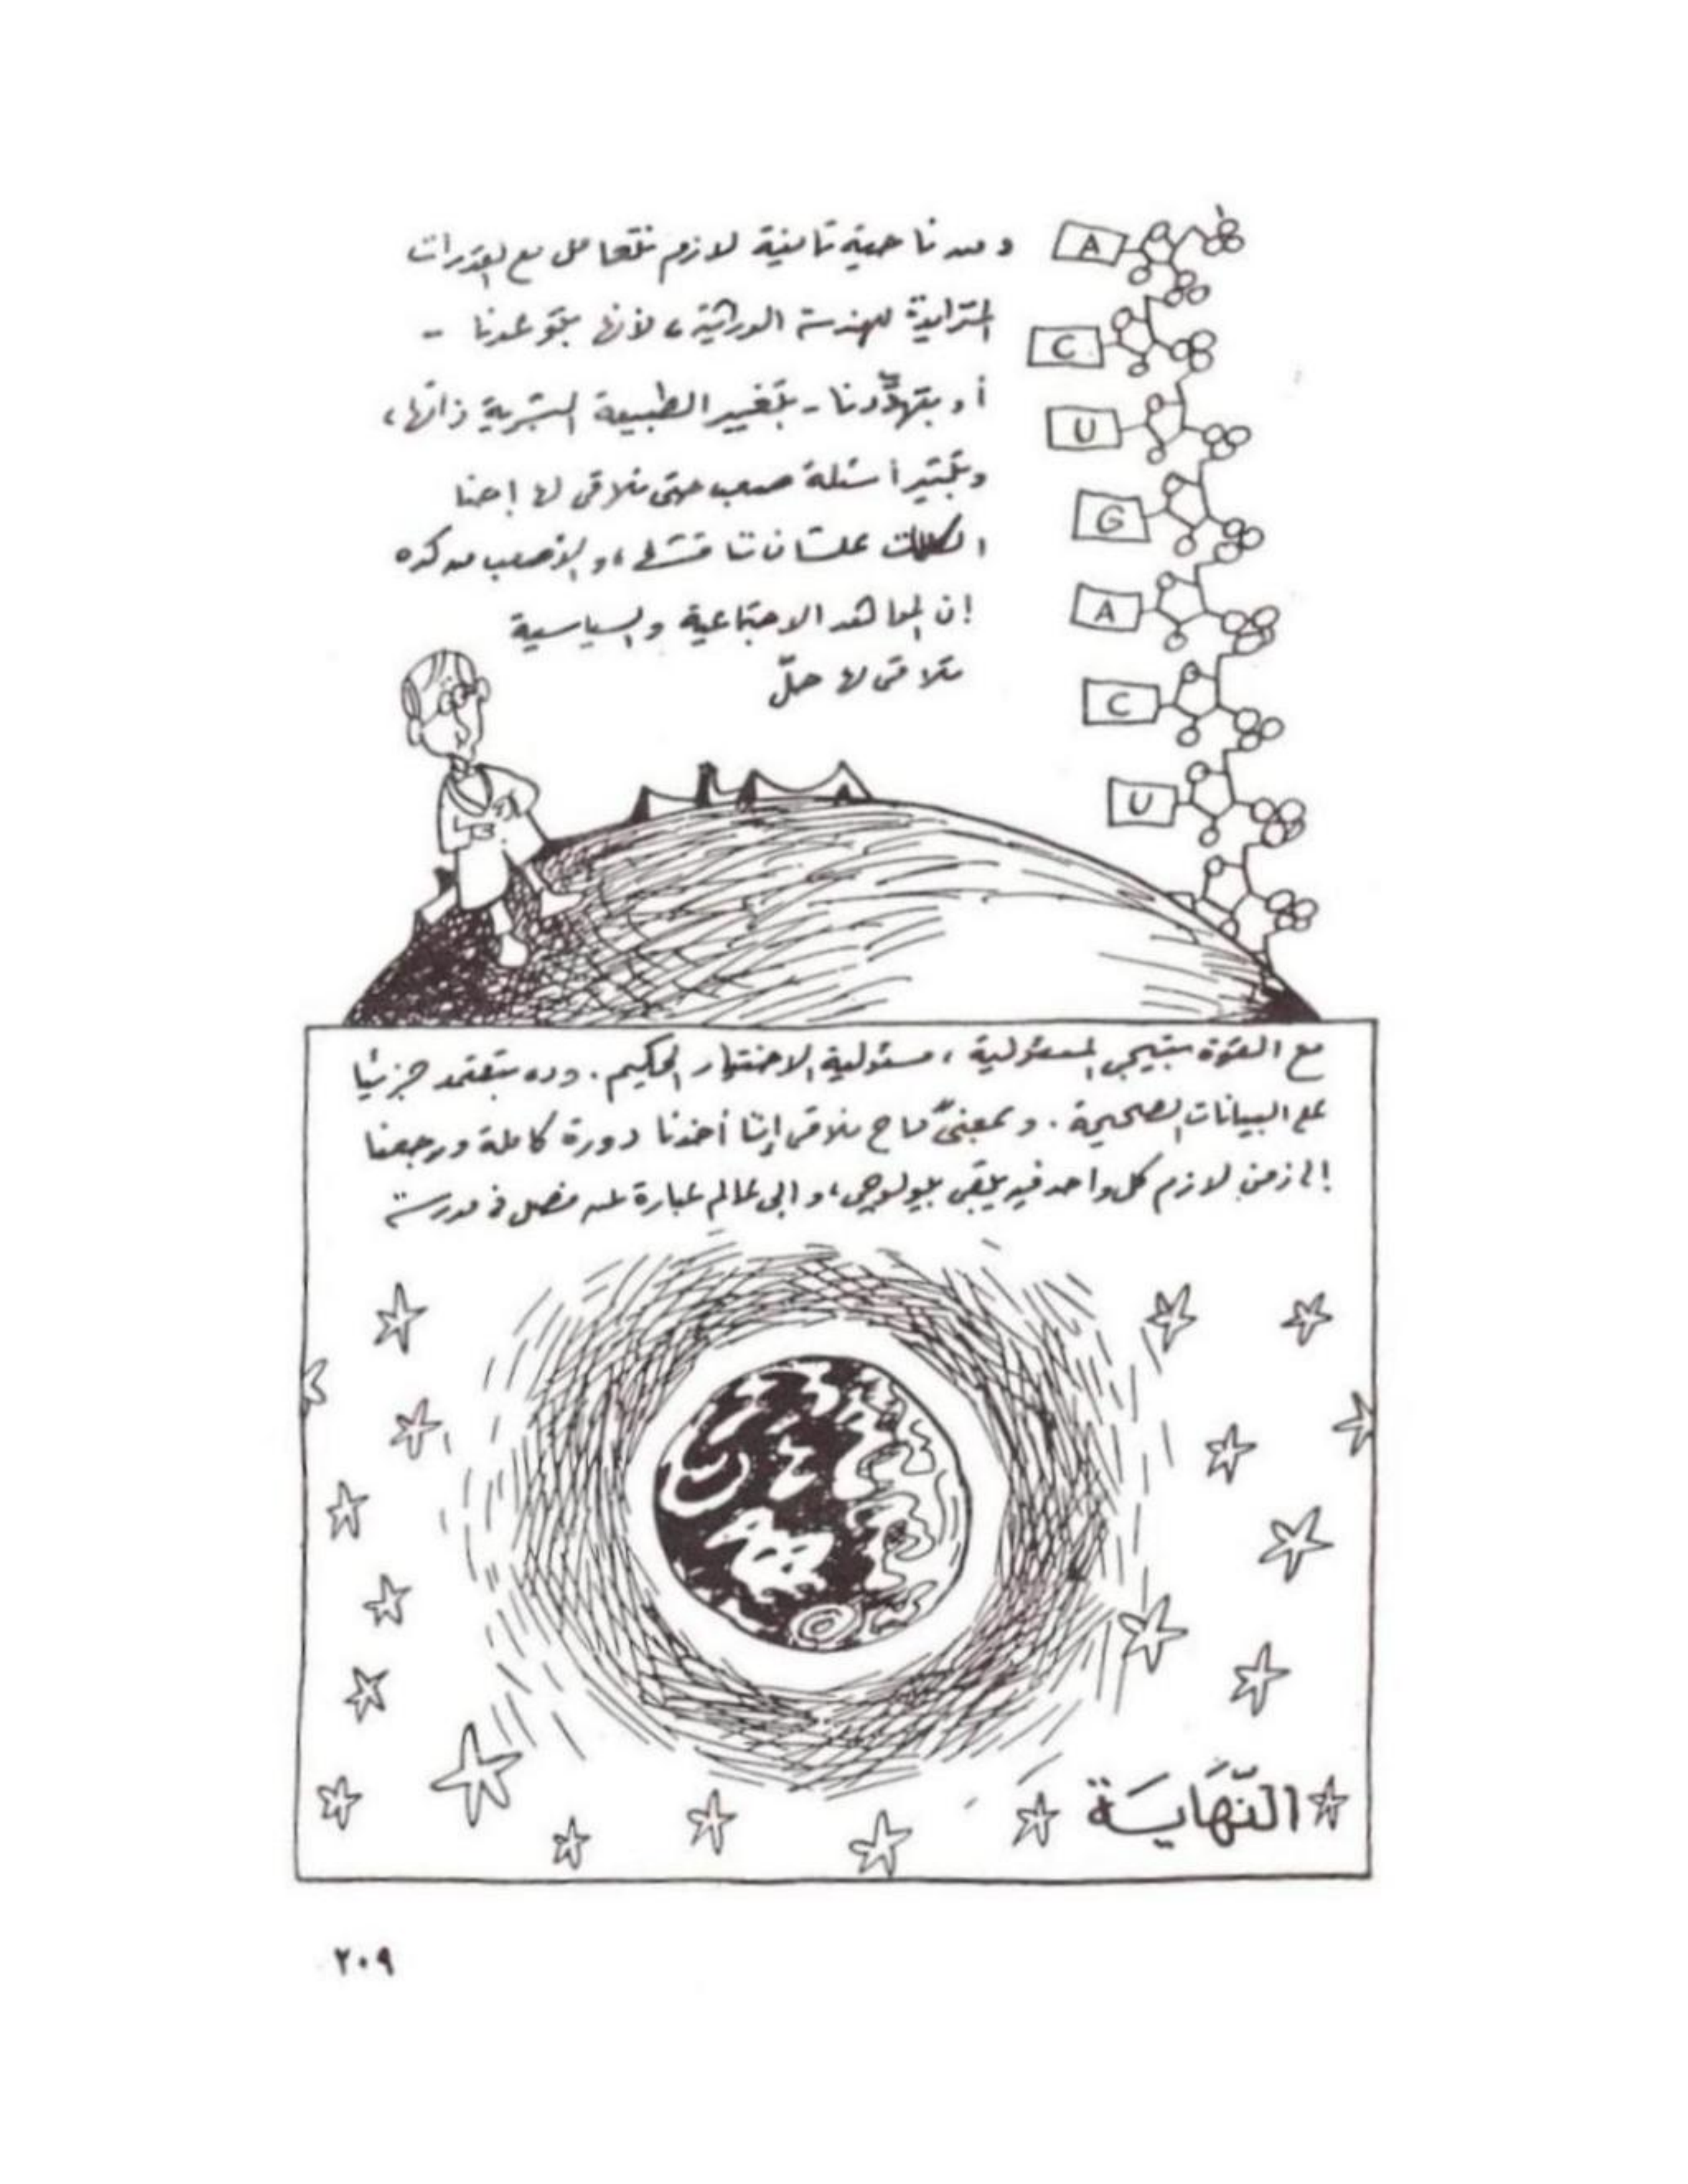 ومن ناحية تانية لازم نتعامل مع القدرات
المتزايدة للهندسة الوراثية، لأنها بتوعدنا -
أو بتهدّدنا - بتغيير الطبيعة البشرية ذاتها،
وبتثير أسئلة صعب حتى نلاقي لها إحنا
الكلمات علشان نناقشها، والأصعب من كده
إن المواقف الاجتماعية والسياسية
نلاقي لها حلّ
A
C
U
G
A
C
U
مع القوة بتيجي المسئولية، مسئولية الاختيار الحكيم. وده بيعتمد جزئيا
على البيانات الصحيحة. وبمعنىً ما ح نلاقي إننا أخدنا دورة كاملة ورجعنا
إلى زمن لازم كل واحد فيه يبقى بيولوجي، وإلى عالم عبارة عن فصل في مدرسة
النّهايَة
٢٠٩